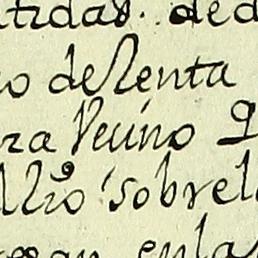 tidas. de d
o de Renta
ra Vecino q
sobre l
enla